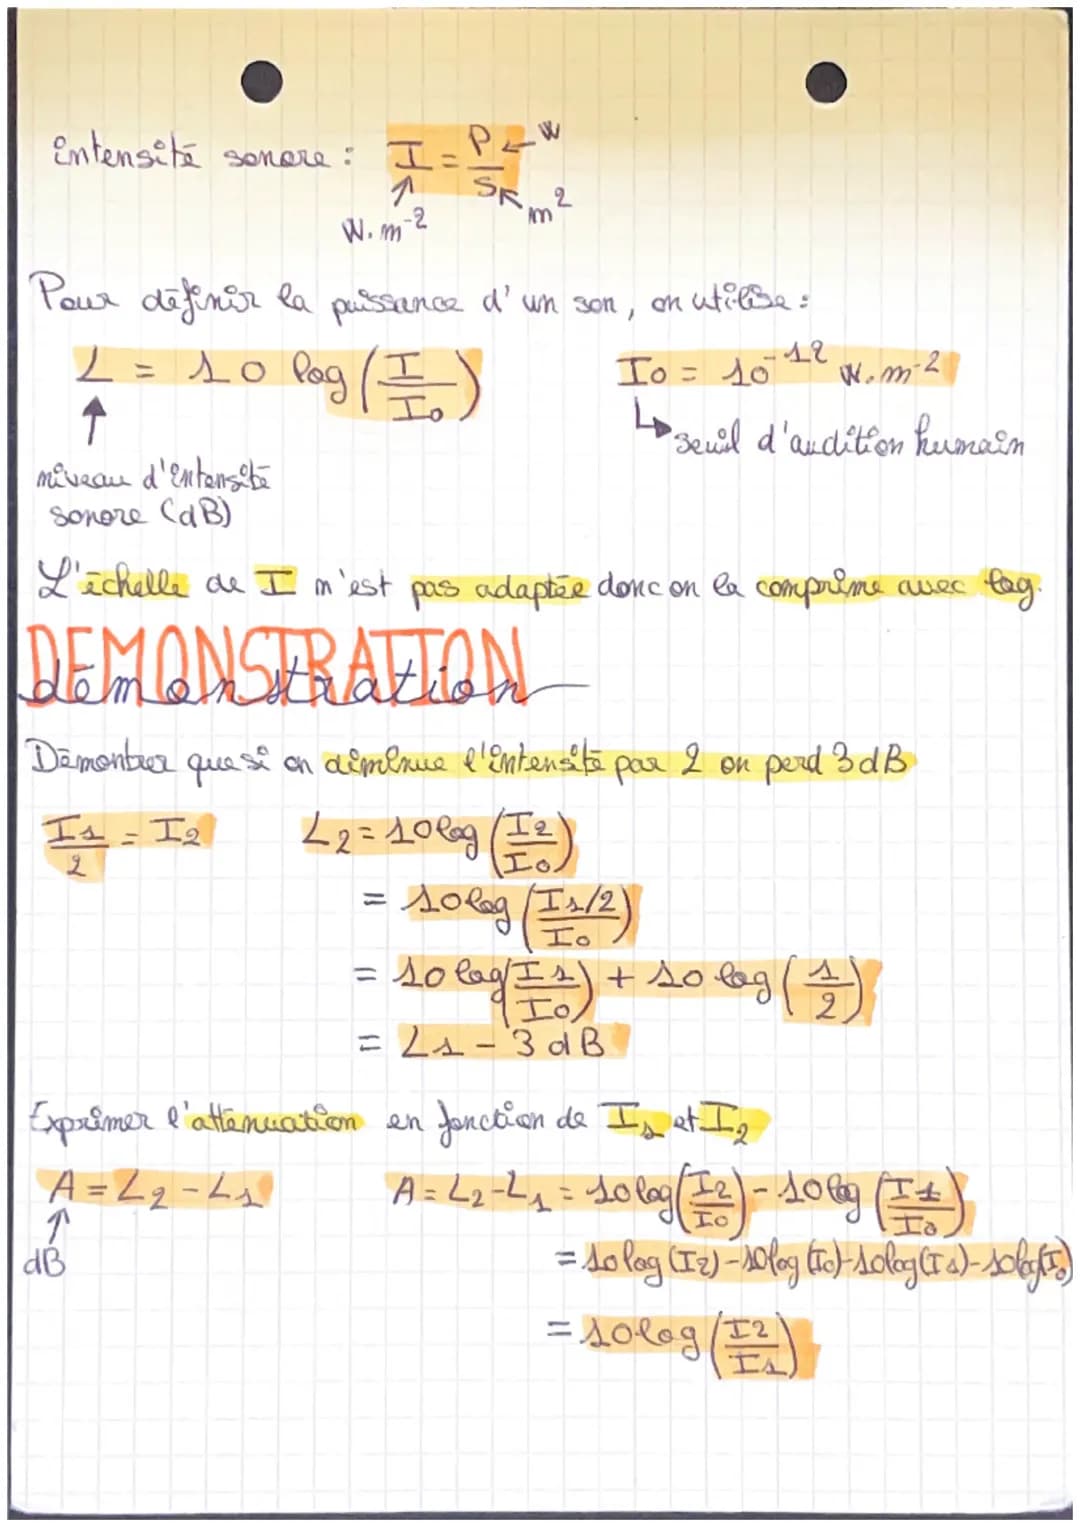 intensité sonore : I = P/S ← W
W.m⁻² m²
Pour définir la puissance d'un son, on utilise :
L = 10 log (I/I₀) I₀ = 10⁻¹² W.m⁻²
↳ seuil d'audition humain
niveau d'intensité
sonore (dB)
L'échelle de I n'est pas adaptée donc on la comprime avec log.
DEMONSTRATION
démonstration
Démontrer que si on diminue l'intensité par 2 on perd 3 dB
I₁/2 = I₂ L₂ = 10 log (I₂/I₀)
= 10 log (I₁/2 / I₀)
= 10 log (I₁/I₀) + 10 log (1/2)
= L₁ - 3 dB
Exprimer l'atténuation en fonction de I₁ et I₂
A = L₂ - L₁ A = L₂ - L₁ = 10 log (I₂/I₀) - 10 log (I₁/I₀)
dB = 10 log (I₂) - 10 log (I₀) - 10 log (I₁) - 10 log (I₀)
= 10 log (I₂/I₁)